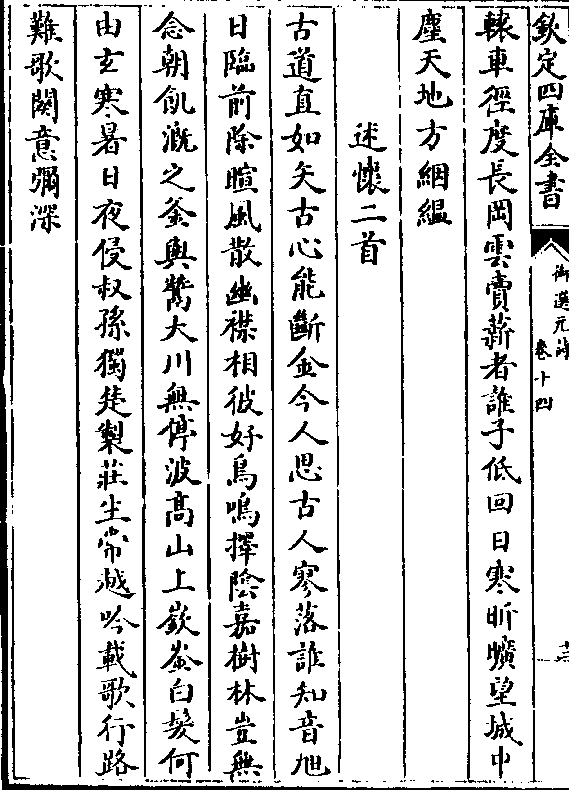 欽定四庫全書
御選元詩
卷十四
轅車徑度長岡雲賣薪者誰子低回日寒昕曠望城中
塵天地方絪縕
述懷二首
古道直如矢古心能斷金今人思古人寥落誰知音旭
日臨前除暄風散幽襟相彼好鳥鳴擇陰嘉樹林豈無
念朝飢溉之釜與鬵大川無停波高山上嶔崟白髮何
由玄寒暑日夜侵叔孫獨楚製莊生常越吟載歌行路
難歌闋意彌深